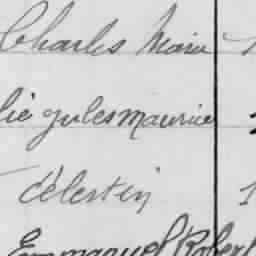 Charles Marie
lie Jules Maurice
Célestin
Emmanuel Robert